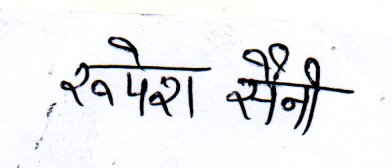 रूपेश सैनी